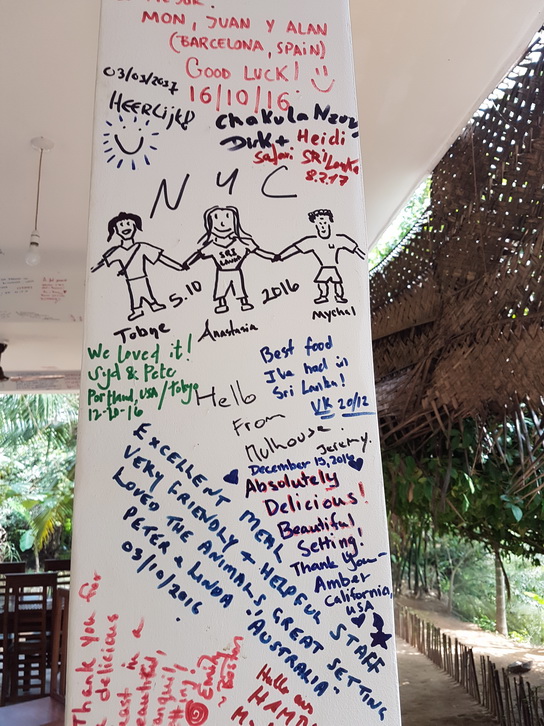 MON, JUAN Y ALAN
(BARCELONA, SPAIN)
GOOD LUCK!
16/10/16
03/03/2017
HEERLIJK!
Chakula
Dirk + Heidi
Safari SRi Lanka
8.2.17
NYC
SRI
LANKA
5.10 2016
Tobye Anastasia Mychal
We loved it!
Syd & Pete
Portland, USA / Tokyo
12-10-16
Best food
I've had in
Sri Lanka!
UK 20/12
Hello
From
Mulhouse.
Jeremy.
December 15, 2016
Absolutely
Delicious!
Beautiful
Setting!
Thank you-
Amber
California,
USA
EXCELLENT MEAL
VERY FRIENDLY + HELPFUL STAFF
LOVED THE ANIMALS, GREAT SETTING
PETER & LINDA 'AUSTRALIA'
03/10/2016.
Thank you for
delicious
in a
beautiful
Emily
Boston
Hello from